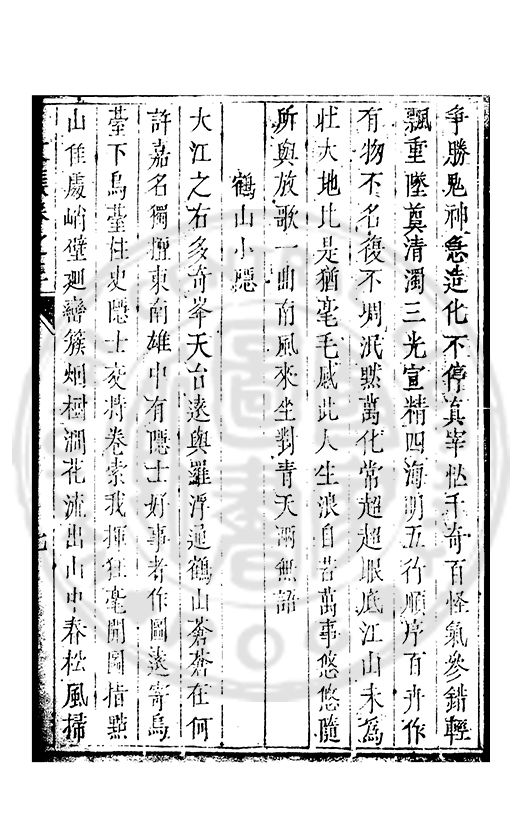 爭勝鬼神愁造化不停真宰怭千奇百怪氣參錯輕
飄重墜奠清濁三光宣精四海明五行順序百卉作
有物不名復不凋泯默萬化常超超眼底江山未為
壯大地比是猶毫毛感此人生浪自苦萬事悠悠隨
所與放歌一曲南風來坐對青天兩無語
鶴山小隱
大江之右多奇峯天台遠與羅浮通鶴山蒼蒼在何
許嘉名獨擅東南雄中有隱士好事者作圖遠寄烏
臺下烏臺柱史隱士交持卷索我揮狂毫開圖指點
山佳處峭壁廻巒簇烟樹澗花流出山中春松風掃